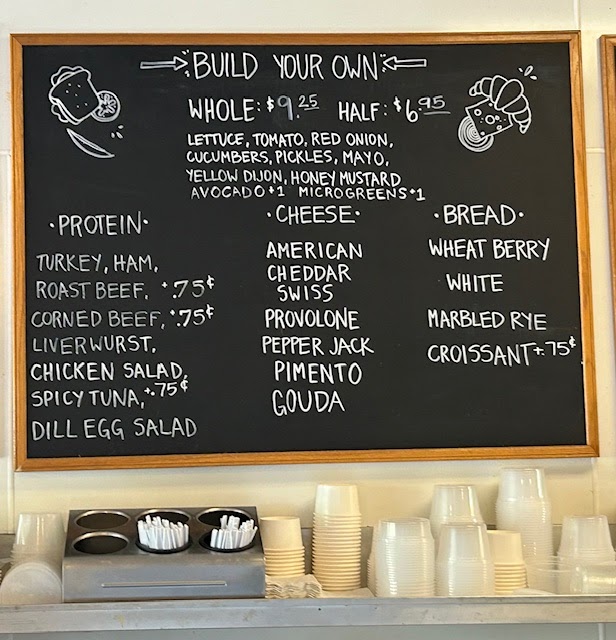 BUILD YOUR OWN
WHOLE: $9.25 HALF: $6.95
LETTUCE, TOMATO, RED ONION,
CUCUMBERS, PICKLES, MAYO,
YELLOW DIJON, HONEY MUSTARD
AVOCADO+1 MICROGREENS+1
·PROTEIN·
TURKEY, HAM,
ROAST BEEF, +.75¢
CORNED BEEF, +.75¢
LIVERWURST,
CHICKEN SALAD,
SPICY TUNA, +.75¢
DILL EGG SALAD
·CHEESE·
AMERICAN
CHEDDAR
SWISS
PROVOLONE
PEPPER JACK
PIMENTO
GOUDA
·BREAD·
WHEAT BERRY
WHITE
MARBLED RYE
CROISSANT+.75¢